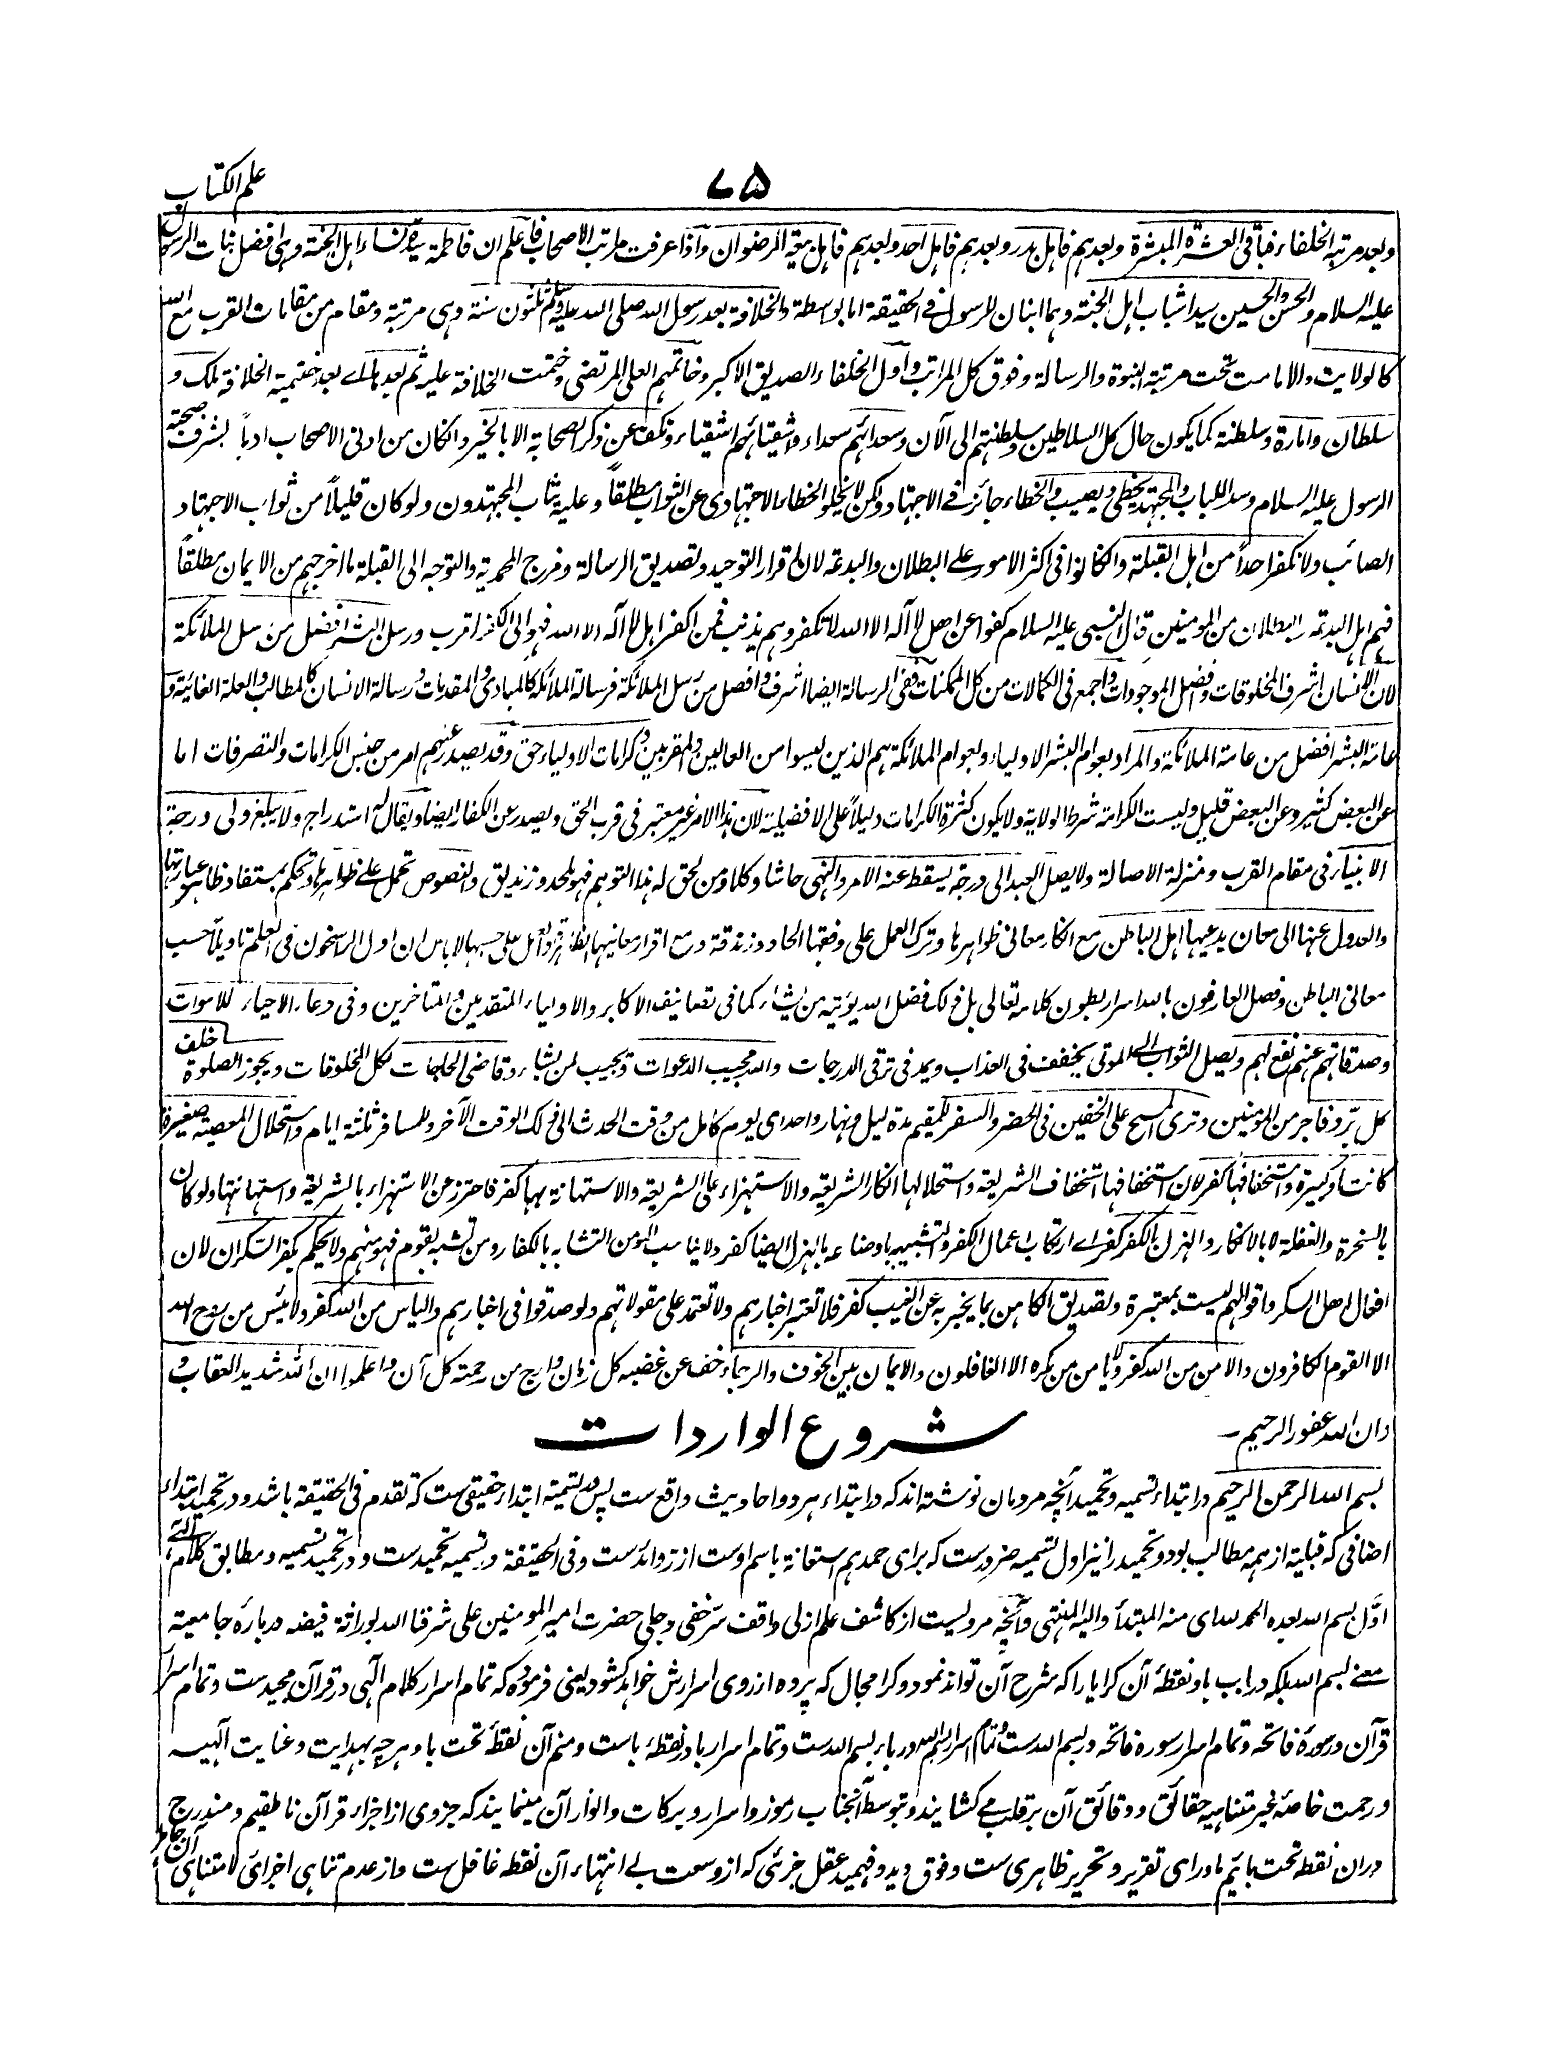 علم الکتاب
۷۵
وبعد مرتبة الخلفاء فباقی العشرة المبشرة وبعدهم فاهل بدر وبعدهم فاهل احد وبعدهم فاهل بیعة الرضوان واذا عرفت مراتب الاصحاب فاعلم ان فاطمة سیدة نساء اهل الجنة وهی افضل بنات الرسول
علیه السلام والحسن والحسین سیدا شباب اهل الجنة وهما ابنان للرسول فی الحقیقة اما بواسطة والخلافة بعد رسول الله صلی الله علیه وسلم ثلثون سنة وهی مرتبة ومقام من مقامات القرب مع الله
کالولایت والامامت تحت مرتبة النبوة والرسالة وفوق کل المراتب واول الخلفاء الصدیق الاکبر وخاتمهم العلی المرتضی وختمت الخلافة علیه ثم بعدها اے بعد ختمیة الخلافة ملک و
سلطان وامارة وسلطنة کما یکون حال کل السلاطین وسلطنتهم الی الآن وسعدائهم سعداء واشقیائهم اشقیاء ونکف عن ذکر الصحابة الا بالخیر وانکان من ادنی الاصحاب ادباً بشرف صحبة
الرسول علیه السلام وسداً للباب والمجتهد یخطی ویصیب والخطاء جائز فی الاجتهاد ولکن لا یخلو الخطاء الاجتهادی عن الثواب مطلقاً وعلیه یثاب المجتهدون ولو کان قلیلاً من ثواب الاجتهاد
الصائب ولا نکفر احداً من اهل القبلة وانکانوا فی اکثر الامور علی البطلان والبدعة لان اقرار التوحید وتصدیق الرسالة وفرج المحمدیة والتوجه الی القبلة ما اخرجهم من الایمان مطلقاً
فهم اهل البدعة والبطلان من المومنین قال النبی علیه السلام کفوا عن اهل لا آله الا الله لا تکفروهم بذنب فمن اکفر اهل لا آله الا الله فهو الی الکفر اقرب ورسل البشر افضل من رسل الملائکة
لان الانسان اشرف المخلوقات وافضل الموجودات واجمع فی الکمالات من کل الممکنات ففی الرسالة ایضا اشرف وافضل من رسل الملائکة فرسالة الملائکة کالمبادی والمقدمات ورسالة الانسان کالمطالب والعلة الغائیة و
عامة البشر افضل من عامة الملائکة والمراد بعوام البشر الاولیاء وبعوام الملائکة هم الذین لیسوا من العالین والمقربین وکرامات الاولیاء حق وقد یصدر عنهم امر من جنس الکرامات والتصرفات اما
عن البعض کثیر وعن البعض قلیل ولیست الکرامة شرط الولایة ولا یکون کثرة الکرامات دلیلاً علی الافضلیة لان هذا الامر غیر معتبر فی قرب الحق ویصدر عن الکفار ایضا ویقال له استدراج ولا یبلغ ولی درجة
الانبیاء فی مقام القرب ومنزلة الاصالة ولا یصل العبد الی درجة یسقط عنه الامر والنهی حاشا وکلا ومن لحق له هذا التوهم فهو ملحد وزندیق والنصوص تحمل علی ظواهرها وتحکم بمستفاد ظاهر عبارتها
والعدول عنها الی معان یدعیها اهل الباطن مع انکار معانی ظواهرها وترک العمل علی وفقها الحاد وزندقة ومع اقرار معانیها الظاهرة والعمل علی حسبها لا باس ان اول الراسخون فی العلم تاویلاً حسب
معانی الباطن وفصل العارفون بالله اسرار بطون کلامه تعالی بل ذلک فضل الله یؤتیه من یشاء کما فی تصانیف الاکابر والاولیاء المتقدمین والمتاخرین وفی دعاء الاحیاء للاموات
وصدقاتهم عنهم نفع لهم ویصل الثواب الی الموتی یخفف فی العذاب ویمد فی ترقی الدرجات والله مجیب الدعوات ویجیب لمن یشاء وقاضی الحاجات لکل المخلوقات ویجوز الصلوة خلف
کل بر وفاجر من المومنین ونری المسح علی الخفین فی الحضر والسفر للمقیم مدة لیل ونهار واحد ای یوم کامل من وقت الحدث الی ذلک الوقت الآخر وللمسافر ثلثة ایام واستحلال المعصیة صغیرة
کانت او کبیرة واستخفافها کفر لان استخفافها استخفاف الشریعة واستحلالها انکار الشریعة والاستهزاء علی الشریعة والاستهانة بها کفر فاحترز عن الاستهزاء بالشریعة واستهانتها ولو کان
بالسخرة والغفلة لا بالانکار والهزل بالکفر کفر اے ارتکاب اعمال الکفر والتشبیه باوضاعه بالهزل ایضا کفر ولا یناسب المومن التشابه بالکفار ومن تشبه بقوم فهو منهم ولا یحکم بکفر السکران لان
افعال اهل السکر واقوالهم لیست بمعتبرة وتصدیق الکاهن بما یخبر به عن الغیب کفر فلا تعتبر اخبارهم ولا تعتمد علی مقولاتهم ولو صدقوا فی اخبارهم والیاس من الله کفر ولا ییئس من روح الله
الا القوم الکافرون والامن من الله کفر ولا یامن من مکره الا الغافلون والایمان بین الخوف والرجاء خف عن غضبه کل زمان وارج من رحمته کل آن واعلموا ان الله شدید العقاب و
ان الله غفور الرحیم۔
شروع الواردات
بسم الله الرحمن الرحیم در ابتداء تسمیه وتحمید آنچه مردمان نوشته اند که در ابتداء هر دو احادیث واقع ست پس در تسمیة ابتداء حقیقی ست که تقدم فی الحقیقة باشد ودر تحمید ابتداء
اضافی که قبلیة از همه مطالب بود وتحمید را نیز اول تسمیه ضرورست که برای حمد هم استعانة باسم اوست از زوائدست وفی الحقیقة در تسمیه تحمیدست ودر تحمید تسمیه ومطابق کلام الٓهی
اوّل بسم الله بعده الحمد لله ای منه المبتدأ والیه المنتهی وآنچه مرویست از کاشف علم ازلی واقف سر خفی وجلی حضرت امیر المومنین علی شرفنا الله بورائة فیضه درباره جامعیة
معنے بسم الله بلکه در باب باء ونقطهٔ آن کرا یارا که شرح آن تواند نمود وکرا مجال که پرده از روی اسرارش خواهد کشود یعنی فرموده که تمام اسرار کلام الٓهی در قرآن مجیدست وتمام اسرار
قرآن در سورهٔ فاتحه وتمام اسرار سوره فاتحه در بسم الله ست وتمام اسرار بسم الله در باء بسم الله ست وتمام اسرار با در نقطهٔ باست ومنم آن نقطهٔ تحت با وهر چه بهدایت وعنایت الٓهیه
ورحمت خاصهٔ غیر متناهیه حقائق ودقائق آن بر قلب مے کشایند وبتوسط آنجناب رموز واسرار وبرکات وانوار آن مینمایند که جزوی از اجزاء قرآن ناطقیم ومندرج
دران نقطه تحت بائیم ماورای تقریر وتحریر ظاهری ست وفوق دید وفهمید عقل جزئی که از وسعت بے انتهاء آن نقطه غافل ست واز عدم تناهی اجزائ لامتناهی آن جاهل